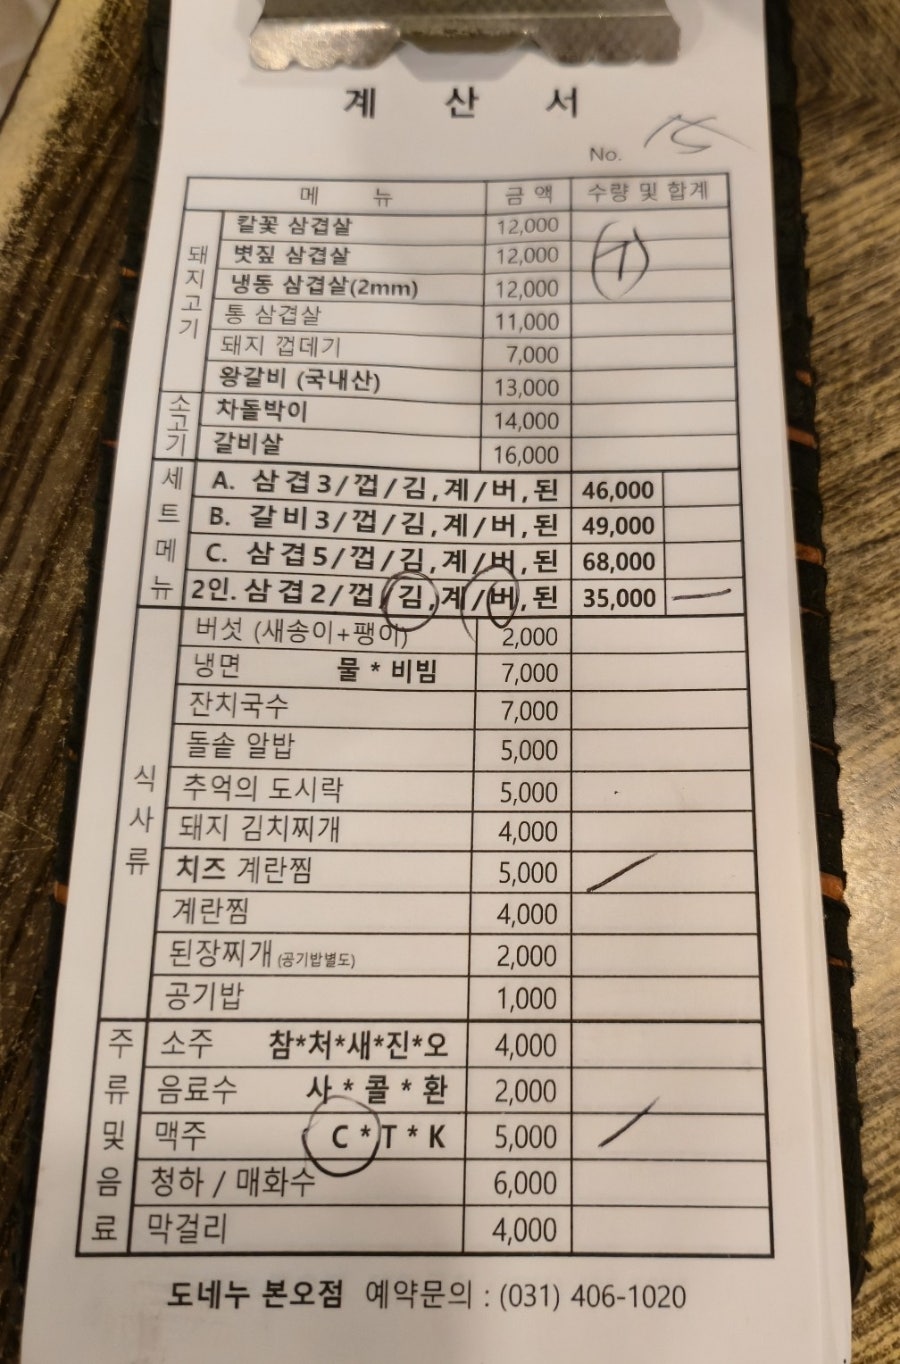 계 산 서
No.
메 뉴 금 액 수량 및 합계
돼지고기
칼꽃 삼겹살 12,000
볏짚 삼겹살 12,000
냉동 삼겹살(2mm) 12,000
통 삼겹살 11,000
돼지 껍데기 7,000
왕갈비 (국내산) 13,000
소고기
차돌박이 14,000
갈비살 16,000
세트메뉴
A. 삼겹3/껍/김,계/버,된 46,000
B. 갈비3/껍/김,계/버,된 49,000
C. 삼겹5/껍/김,계/버,된 68,000
2인. 삼겹2/껍/김,계/버,된 35,000
식사류
버섯 (새송이+팽이) 2,000
냉면 물 * 비빔 7,000
잔치국수 7,000
돌솥 알밥 5,000
추억의 도시락 5,000
돼지 김치찌개 4,000
치즈 계란찜 5,000
계란찜 4,000
된장찌개 (공기밥별도) 2,000
공기밥 1,000
주류 및 음료
소주 참*처*새*진*오 4,000
음료수 사 * 콜 * 환 2,000
맥주 C * T * K 5,000
청하 / 매화수 6,000
막걸리 4,000
도네누 본오점 예약문의 : (031) 406-1020